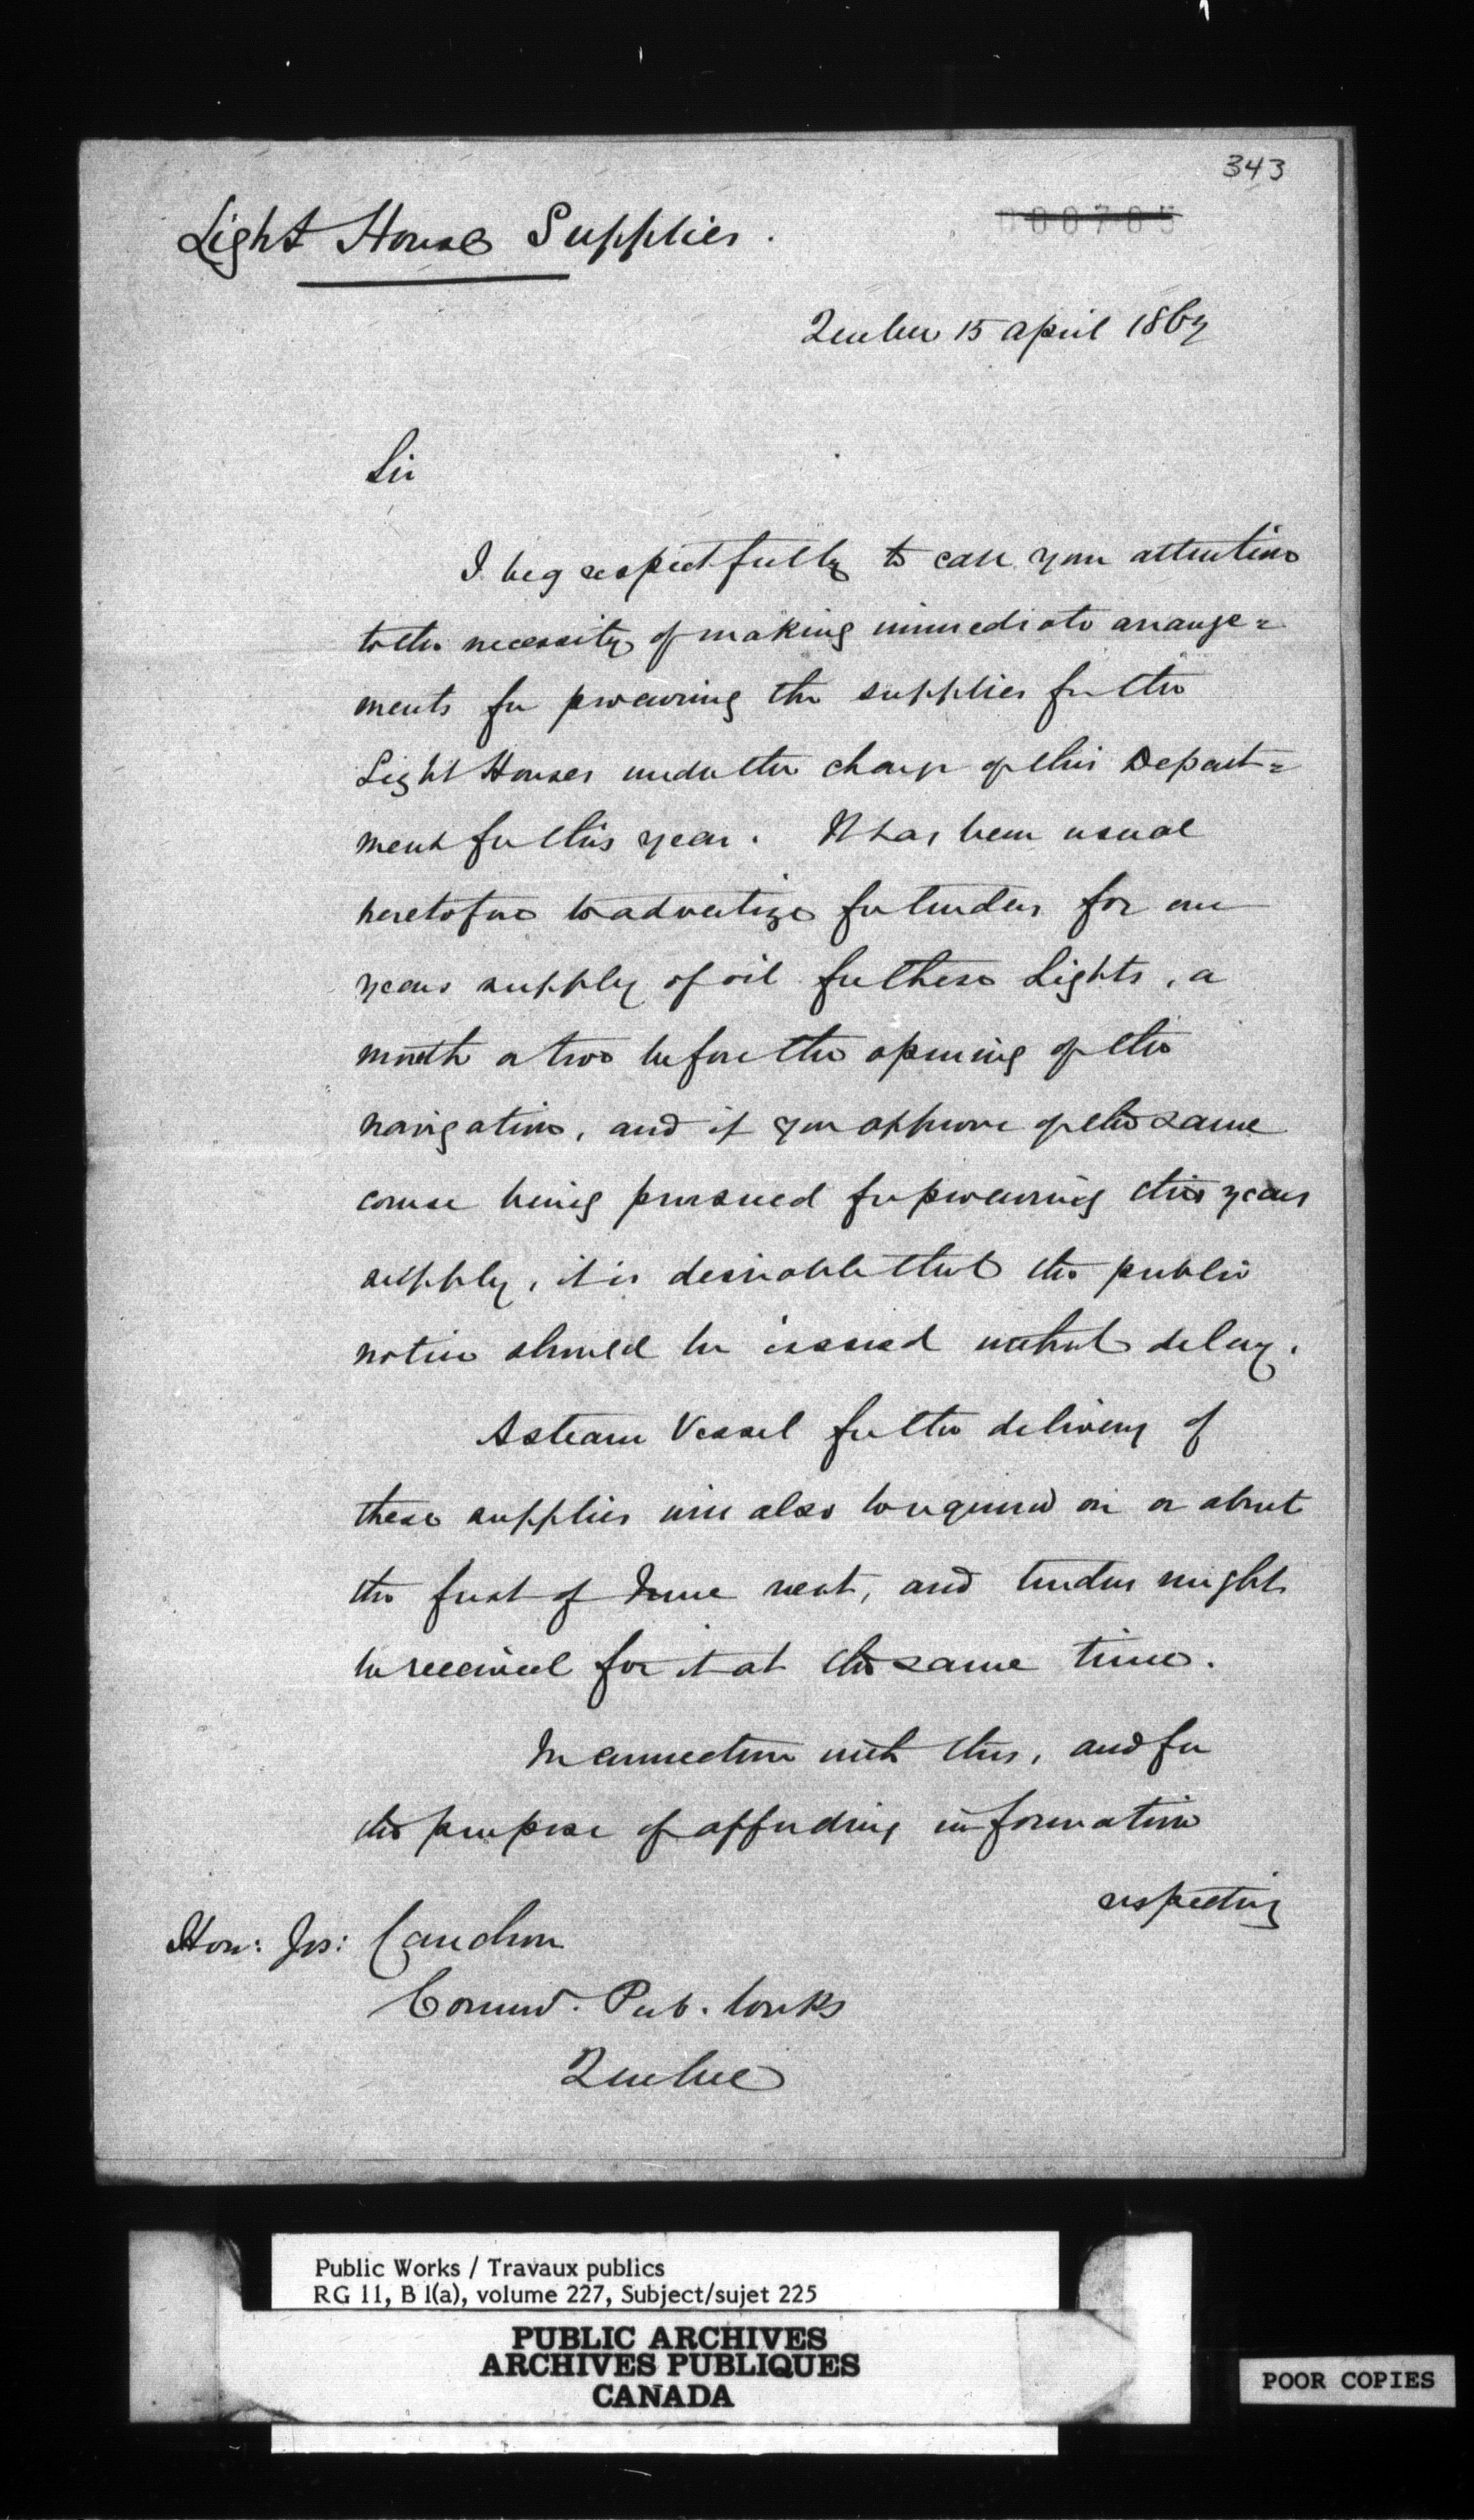 343
000705
Light House Supplies.
Quebec 15 April 1862
Sir
I beg respectfully to call your attention
to the necessity of making immediate arrange=
ments for procuring the supplies for the
Light Houses under the charge of this Depart=
ment for this year. It has been usual
heretofore to advertize for tenders for one
years supply of oil for these Lights, a
month or two before the opening of the
navigation, and if you approve of the same
course being pursued for procuring this years
supply, it is desirable that the public
notice should be issued without delay.
A steam Vessel for the delivery of
these supplies will also be required on or about
the first of June next, and tenders might
be received for it at the same time.
In connection with this, and for
the purpose of affording information
respecting
Hon: Jos: Cauchon
Commr. Pub. Works
Quebec
Public Works / Travaux publics
RG 11, B 1(a), volume 227, Subject/sujet 225
PUBLIC ARCHIVES
ARCHIVES PUBLIQUES
CANADA
POOR COPIES